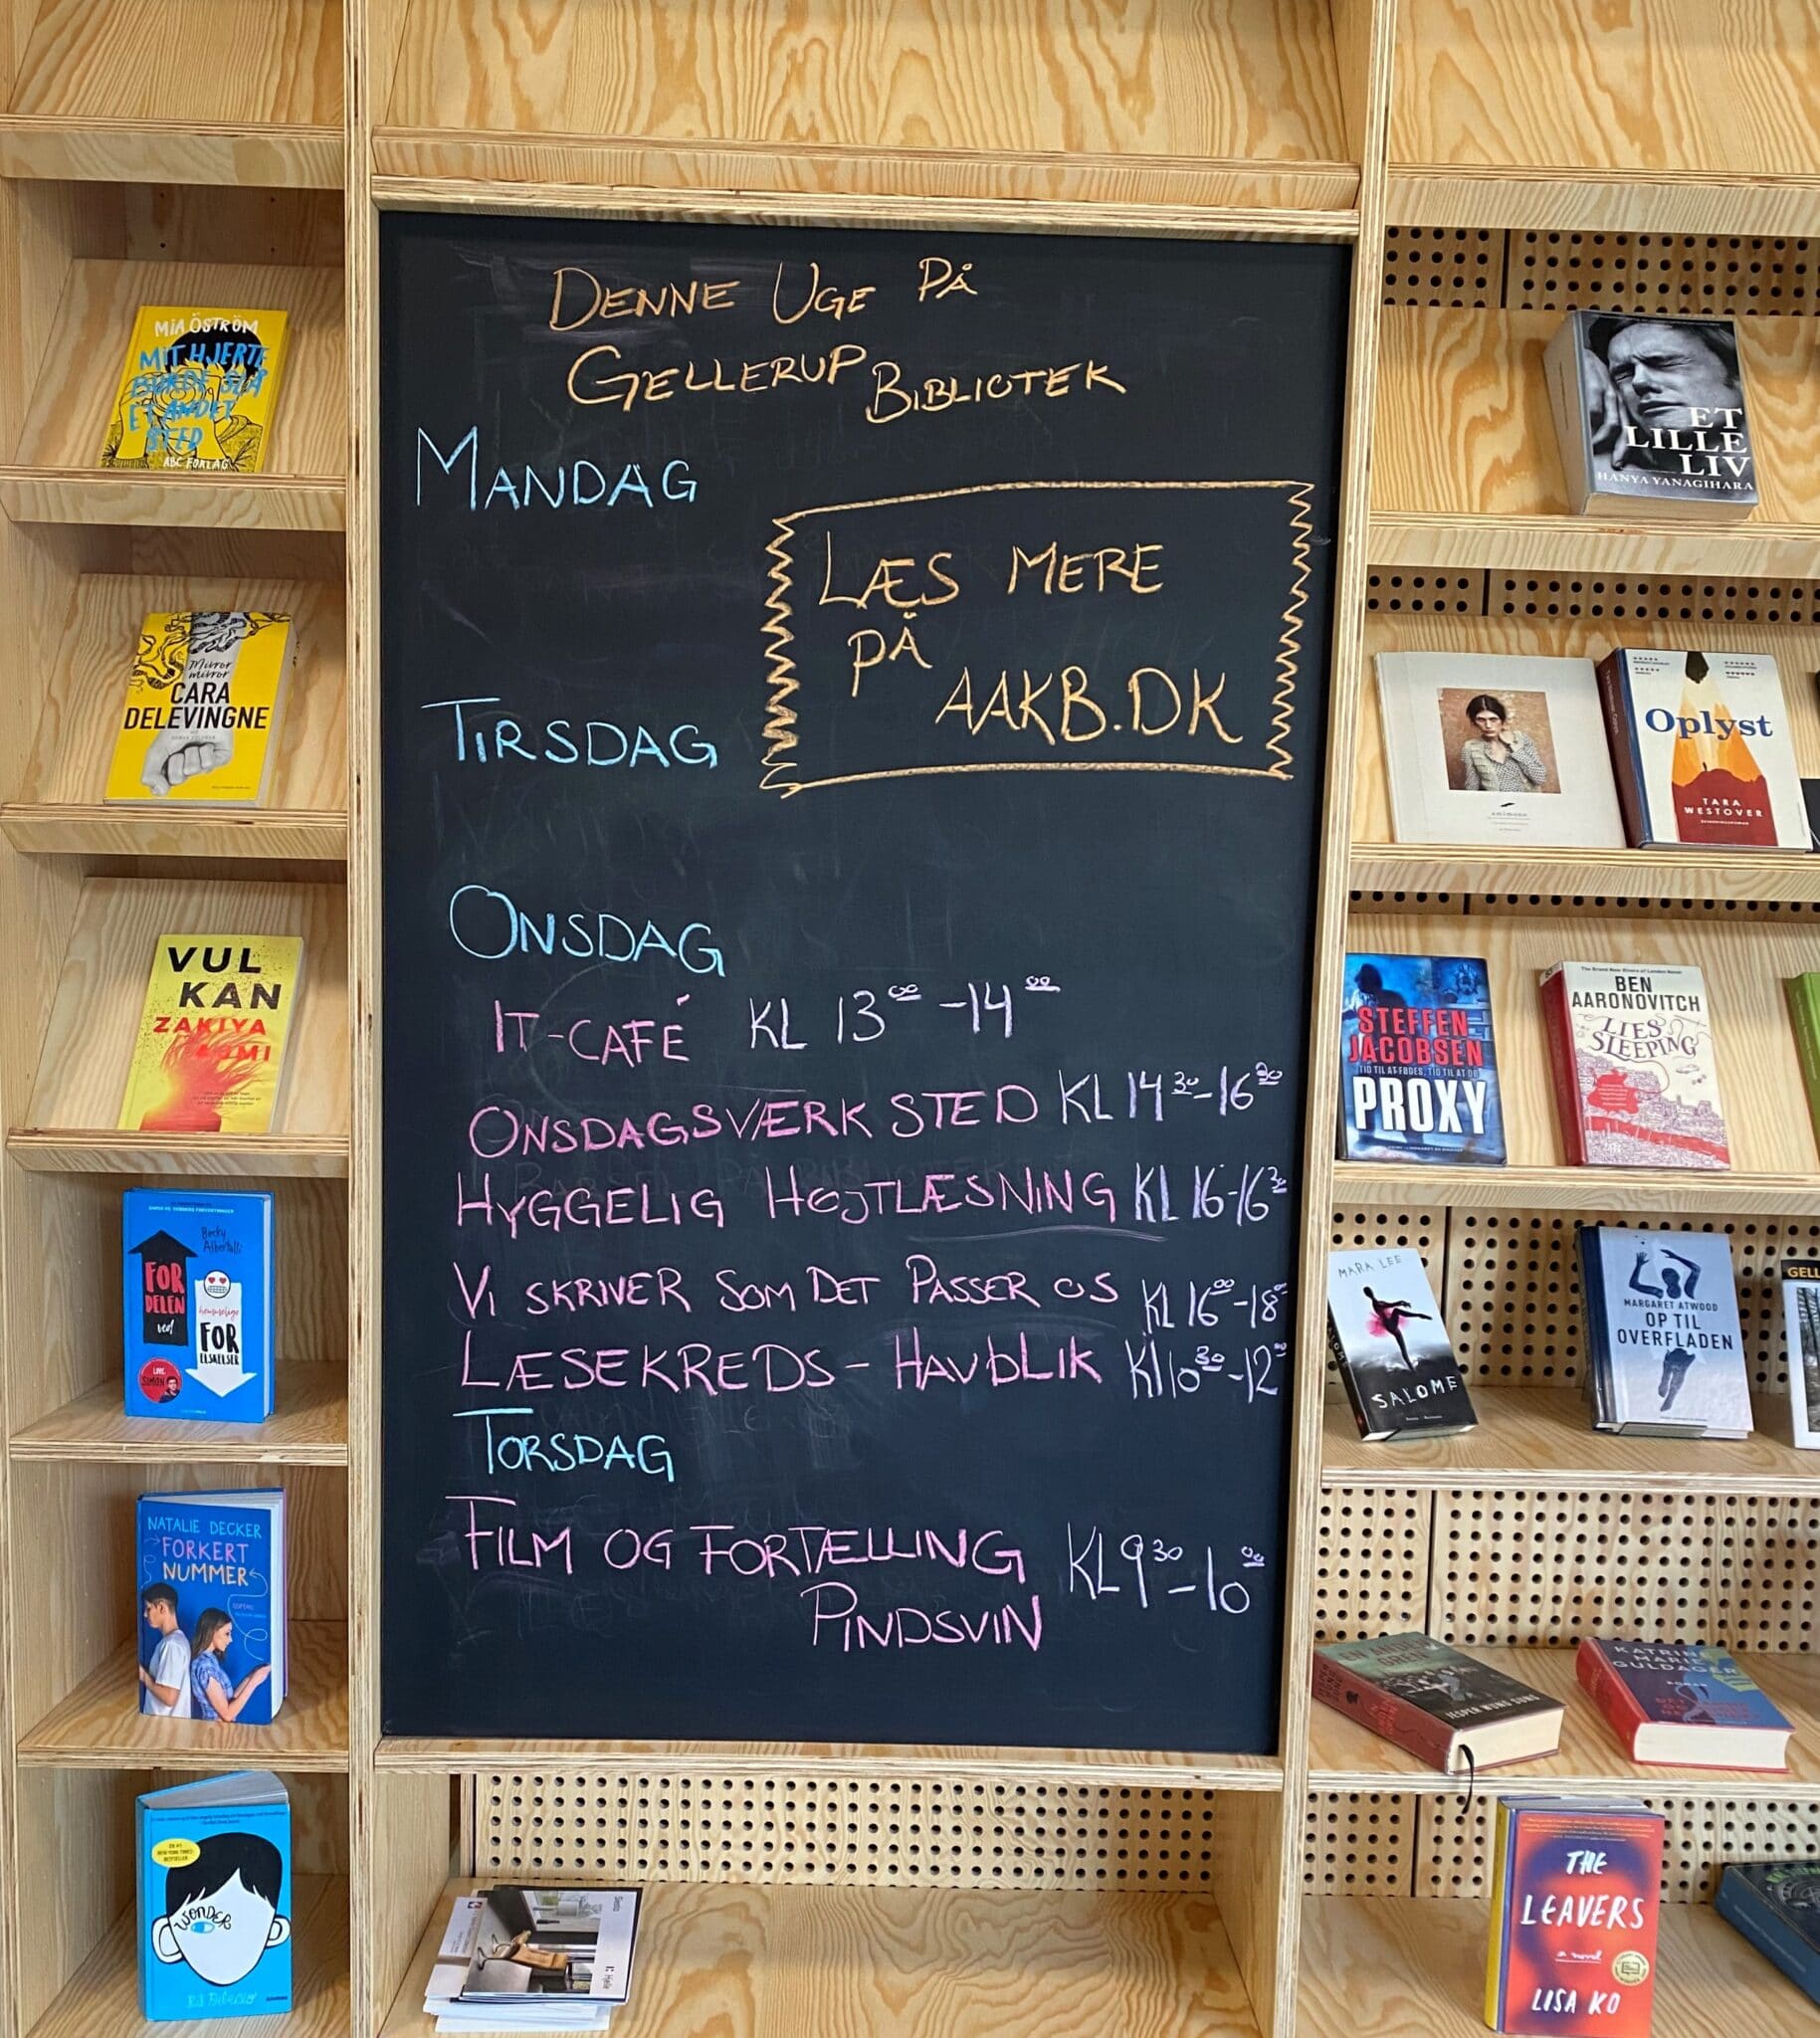 DENNE UGE PÅ
GELLERUP BIBLIOTEK
MANDAG
LÆS MERE
PÅ
AAKB.DK
TIRSDAG
ONSDAG
IT-CAFÉ KL 13⁰⁰ -14⁰⁰
ONSDAGSVÆRKSTED KL 14³⁰-16³⁰
HYGGELIG HØJTLÆSNING KL 16-16³⁰
VI SKRIVER SOM DET PASSER OS KL 16⁰⁰-18⁰⁰
LÆSEKREDS - HAVBLIK Kl 10³⁰-12⁰⁰
TORSDAG
FILM OG FORTÆLLING KL 9³⁰-10⁰⁰
PINDSVIN
MIA ÖSTRÖM
MIT HJERTE
BURDE SLÅ
ET ANDET
STED
ABC FORLAG
Mirror
mirror
CARA
DELEVINGNE
VUL
KAN
ZAKIYA
Becky
Albertalli
FOR
DELEN
ved
hemmelige
FOR
ELSKELSER
LOVE,
SIMON
NATALIE DECKER
FORKERT
NUMMER
WONDER
ET
LILLE
LIV
HANYA YANAGIHARA
Oplyst
TARA
WESTOVER
STEFFEN
JACOBSEN
TID TIL AT FØDES, TID TIL AT DØ
PROXY
The Brand New Rivers of London Novel
BEN
AARONOVITCH
LIES
SLEEPING
MARA LEE
SALOME
MARGARET ATWOOD
OP TIL
OVERFLADEN
GELL
JESPER WUNG-SUNG
KATRINE
MARIE
GULDAGER
THE
LEAVERS
a novel
LISA KO